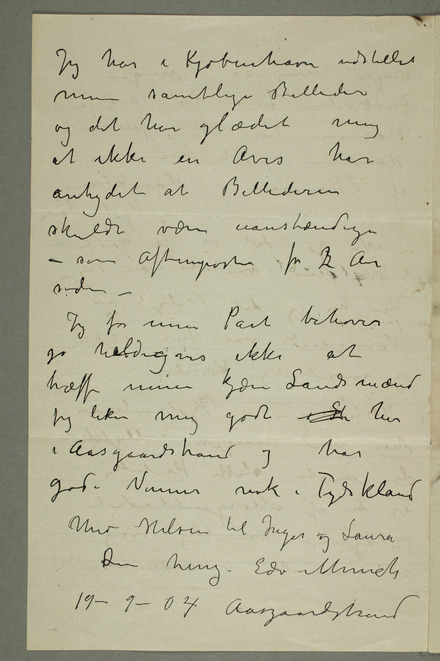 Jeg har i Kjøbenhavn udstillet
mine samtlige Billeder
og det har glædet mig
at ikke en Avis har
antydet at Billederne
skulde være uanstændige
– som Aftenposten for 2 Aar
siden –
Jeg for min Part behøver
jo heldigvis ikke at
træffe mine kjære Landsmænd
jeg liker mig godt her
i Aasgaardstrand og har
gode Venner nok i Tydskland
Med Hilsen til Inger og Laura
Din heng. Edv Munch
19–9–04 Aasgaardstrand